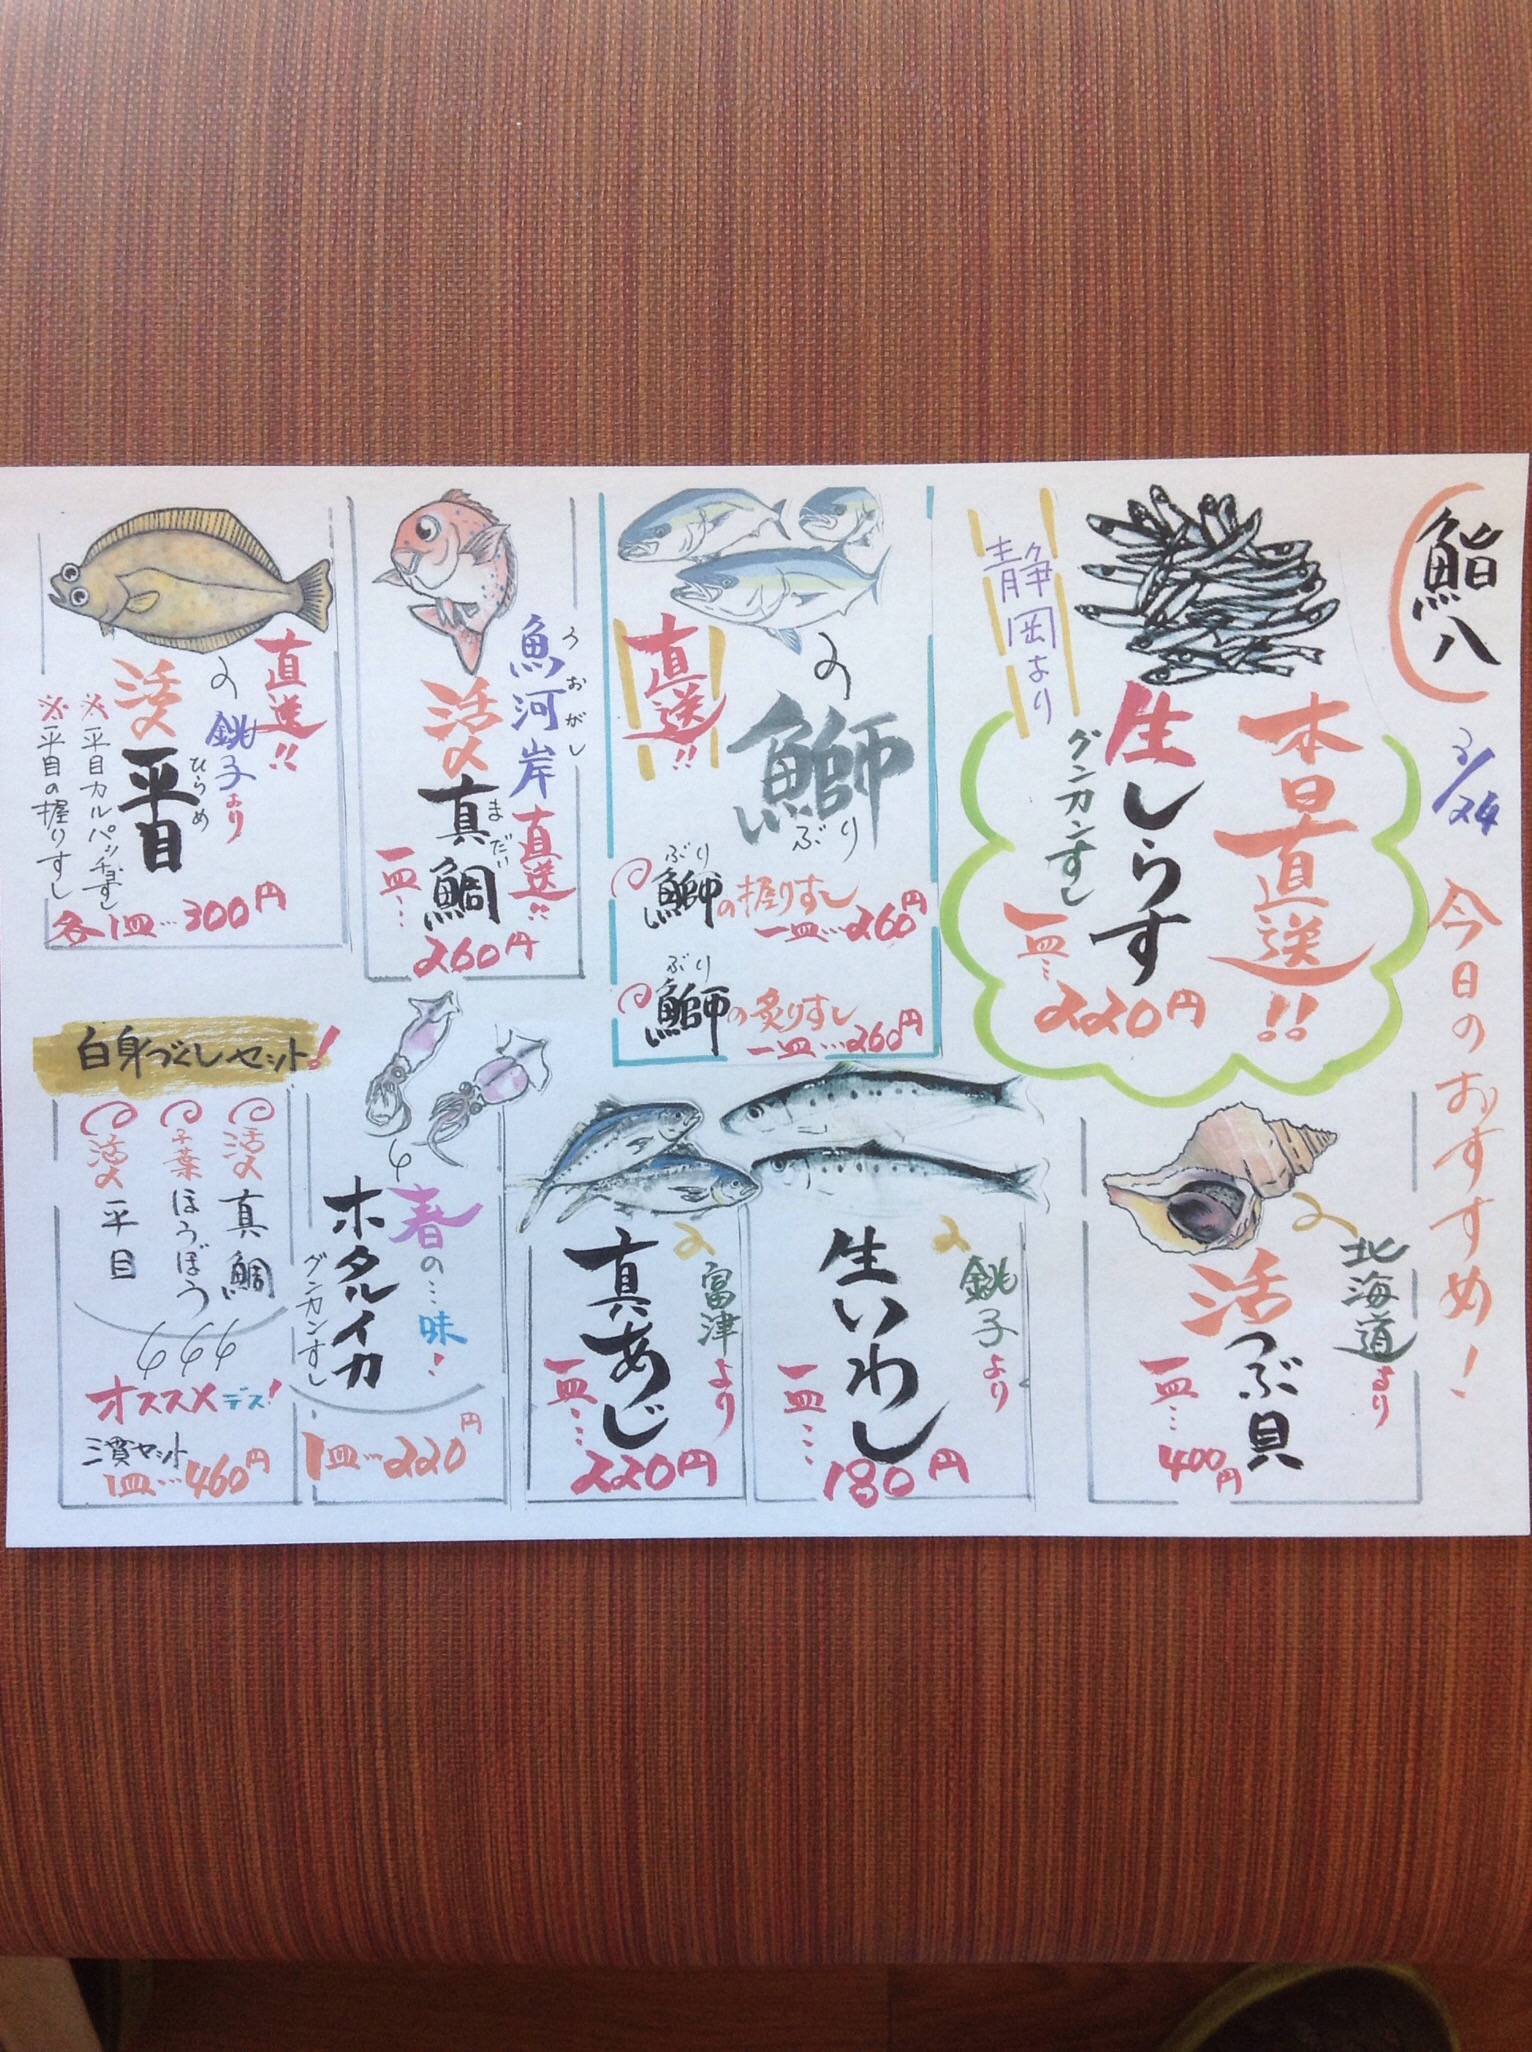 鮨八
3/24
今日のおすすめ!
本日直送!!
生しらす
グンカンすし
静岡より
一皿…220円
直送!!
鰤
ぶり
鰤の握りすし
ぶり
一皿…260円
鰤の炙りすし
ぶり
一皿…260円
魚河岸直送!!
うおがし
活〆真鯛
まだい
一皿…
260円
直送!!
銚子より
活〆平目
ひらめ
※平目カルパッチョすし
※平目の握りすし
各1皿…300円
北海道より
活つぶ貝
一皿…
400円
銚子より
生いわし
一皿…
180円
富津より
真あじ
一皿…
220円
春の…味!
ホタルイカ
グンカンすし
1皿…220円
白身づくしセット!
活〆真鯛
千葉ほうぼう
活〆平目
オススメデス!
三貫セット
1皿…460円